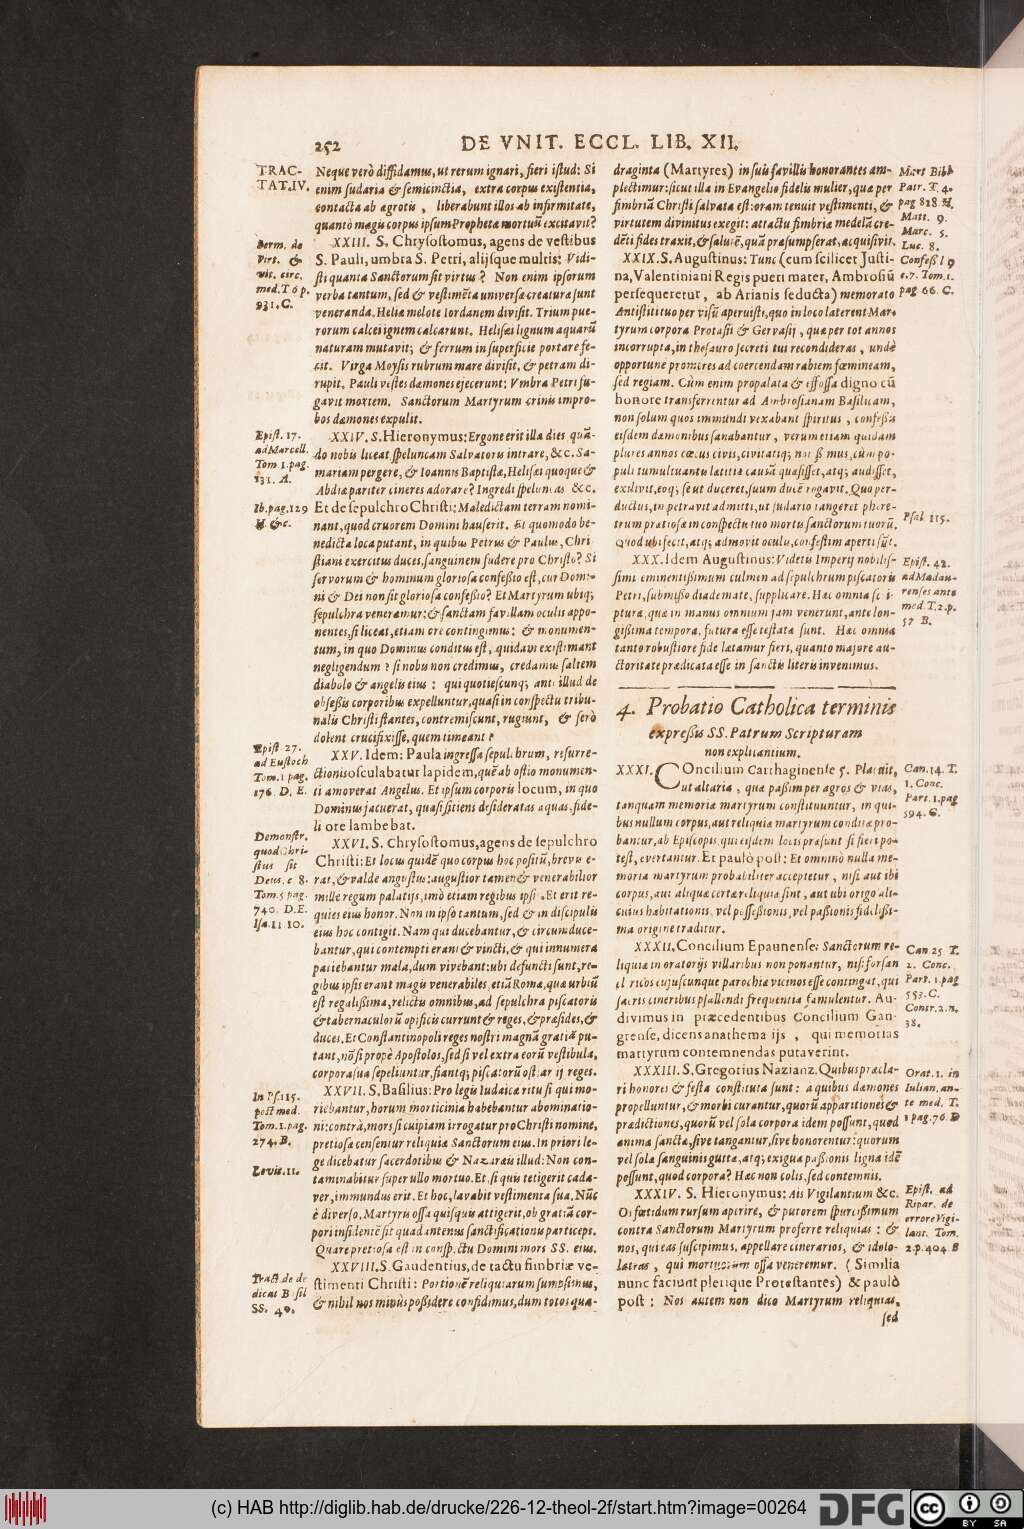 252
DE VNIT. ECCL. LIB. XII.
TRAC-
TAT.IV.
Neque verò diffidamus, ut rerum ignari, fieri istud: Si
enim sudaria & semicinctia, extra corpus existentia,
contacta ab agrotis, liberabunt illos ab infirmitate,
quantò magis corpus ipsum Propheta mortuū excitavit?
Serm. de
Virt. &
vit. circ.
med. T. 6 p.
931. C.
XXIII. S. Chrysostomus, agens de vestibus
S. Pauli, umbra S. Petri, alijsque multis: Vidi-
sti quanta Sanctorum sit virtus? Non enim ipsorum
verba tantum, sed & vestimēta universa creatura sunt
veneranda. Heliæ melote Iordanem divisit. Trium pue-
rorum calcei ignem calcarunt. Helisæi lignum aquarū
naturam mutavit; & ferrum in superficie portare fe-
cit. Virga Moysis rubrum mare divisit, & petram di-
rupit. Pauli vestes dæmones ejecerunt: Vmbra Petri fu-
gavit mortem. Sanctorum Martyrum crinis impro-
bos dæmones expulit.
Epist. 17.
ad Marcell.
Tom. 1. pag.
131. A.
XXIV. S. Hieronymus: Ergone erit illa dies quā-
do nobis liceat speluncam Salvatoris intrare, &c. Sa-
mariam pergere, & Ioannis Baptistæ, Helisæi quoque &
Abdiæ pariter cineres adorare? Ingredi speluncas &c.
Ib. pag. 129
H. &c.
Et de sepulchro Christi: Maledictam terram nomi-
nant, quod cruorem Domini hauserit. Et quomodo be-
nedicta loca putant, in quibus Petrus & Paulus, Chri
stiani exercitus duces, sanguinem fudere pro Christo? Si
servorum & hominum gloriosa confessio est, cur Domi-
ni & Dei non sit gloriosa confessio? Et Martyrum ubiq;
sepulchra veneramur: & sanctam favillam oculis appo-
nentes, si liceat, etiam ore contingimus: & monumen-
tum, in quo Dominus conditus est, quidam existimant
negligendum? si nobis non credimus, credamus saltem
diabolo & angelis eius: qui quotiescunq; ante illud de
obsessis corporibus expelluntur, quasi in conspectu tribu-
nalis Christi stantes, contremiscunt, rugiunt, & serò
dolent crucifixisse, quem timeant?
Epist. 27.
ad Eustoch
Tom. 1 pag.
176. D. E.
XXV. Idem: Paula ingressa sepulchrum, resurre-
ctionis osculabatur lapidem, quē ab ostio monumen-
ti amoverat Angelus. Et ipsum corporis locum, in quo
Dominus jacuerat, quasi sitiens desideratas aquas, fide-
li ore lambebat.
Demonstr.
quod Chri-
stus sit
Deus. c 8.
Tom. 5 pag.
740. D.E.
Isa. 11 10.
XXVI. S. Chrysostomus, agens de sepulchro
Christi: Et locus quidē quo corpus hoc positū, brevis e-
rat, & valde angustus: augustior tamen & venerabilior
mille regum palatijs, imò etiam regibus ipsis. Et erit re-
quies eius honor. Non in ipso tantum, sed & in discipulis
eius hoc contigit. Nam qui ducebantur, & circumduce-
bantur, qui contempti erant & vincti, & qui innumera
patiebantur mala, dum vivebant: ubi defuncti sunt, re-
gibus ipsis erant magis venerabiles, etiā Roma, qua urbiū
est regalissima, relictis omnibus, ad sepulchra piscatoris
& tabernaculorū opificis currunt & reges, & præsides, &
duces. Et Constantinopoli reges nostri magnā gratiā pu-
tant, nō si propè Apostolos, sed si vel extra eorū vestibula,
corpora sua sepeliuntur, fiantq; piscatorū ostiarij reges.
In Ps. 115.
post med.
Tom. 1. pag.
274. B.
XXVII. S. Basilius: Pro legis Iudaicæ ritu si qui mo-
riebantur, horum morticinia habebantur abominatio-
ni: contrà, mors si cuipiam irrogatur pro Christi nomine,
pretiosæ censentur reliquiæ Sanctorum eius. In priori le-
Levit. 11.
ge dicebatur sacerdotibus & Nazaræis illud: Non con-
taminabitur super ullo mortuo. Et, si quis tetigerit cada-
ver, immundus erit. Et hoc, lavabit vestimenta sua. Nūc
è diverso. Martyris ossa quisquis attigerit, ob gratiā cor-
pori insidentē fit quadantenus sanctificationis particeps.
Quare pretiosa est in conspectu Domini mors SS. eius.
Tract. de de
dicat Basil
SS. 40.
XXVIII. S. Gaudentius, de tactu fimbriæ ve-
stimenti Christi: Portionē reliquiarum sumpsimus,
& nihil nos minùs possidere confidimus, dum totos qua-
draginta (Martyres) in suis favillis honorantes am-
plectimur: sicut illa in Evangelio fidelis mulier, quæ per
fimbriā Christi salvata est: oram tenuit vestimenti, &
virtutem divinitus exegit: attactu fimbriæ medelā cre-
dēti fides traxit, & salutē, quā præsumpserat, acquisivit.
Mart Bibb
Patr. T. 4.
pag 818 H.
Matt. 9.
Marc. 5.
Luc. 8.
XXIX. S. Augustinus: Tunc (cum scilicet Justi-
na, Valentiniani Regis pueri mater, Ambrosiū
persequeretur, ab Arianis seducta) memorato
Antistiti tuo per visū aperuisti, quo in loco laterent Mar-
tyrum corpora Protasij & Gervasij, quæ per tot annos
incorrupta, in thesauro secreti tui recondideras, undè
opportune promeres ad coercendam rabiem fœmineam,
sed regiam. Cùm enim propalata & effossa digno cū
honore transferrentur ad Ambrosianam Basilicam,
non solum quos immundi vexabant spiritus, confessis
eisdem dæmonibus sanabantur, verum etiam quidam
plures annos cæcus civis, civitatiq; notissimus, cùm po-
puli tumultuantis lætitiæ causā quæsisset, atq; audisset,
exilivit, eoq; se ut duceret, suum ducē rogavit. Quo per-
ductus, impetravit admitti, ut sudario tangeret phere-
trum pratiosæ in conspectu tuo mortis sanctorum tuorū.
Quod ubi fecit, atq; admovit oculis, confestim aperti sūt.
Confess l 9
c.7. Tom. 1.
pag 66. C.
Psal 115.
XXX. Idem Augustinus: Videtis Imperij nobilis-
simi eminentissimum culmen ad sepulchrum piscatoris
Petri, submisso diademate, supplicare. Hæc omnia scri-
ptura, quæ in manus omnium jam venerunt, ante lon-
gissima tempora, futura esse testata sunt. Hæc omnia
tanto robustiore fide lætamur fieri, quanto majore au-
ctoritate prædicata esse in sanctis literis invenimus.
Epist. 42.
ad Madau-
renses ante
med. T. 2. p.
57 B.
4. Probatio Catholica terminis
expressis SS. Patrum Scripturam
non explicantium.
XXXI. COncilium Carthaginense 5. Placuit,
ut altaria, quæ passim per agros & vias,
tanquam memoriæ martyrum constituuntur, in qui-
bus nullum corpus, aut reliquiæ martyrum conditæ pro-
bantur, ab Episcopis, qui eisdem locis præsunt si fieri po-
test, evertantur. Et paulò post: Et omninò nulla me-
moria martyrum probabiliter acceptetur, nisi aut ibi
corpus, aut aliquæ certæ reliquiæ sint, aut ubi origo ali-
cuius habitationis, vel possessionis, vel passionis fidelissi-
ma origine traditur.
Can. 14. T.
1. Conc.
Part. 1. pag
594. G.
XXXII. Concilium Epaunense: Sanctorum re-
liquiæ in oratorijs villaribus non ponantur, nisi forsan
clericos cujuscunque parochiæ vicinos esse contingat, qui
sacris cineribus psallendi frequentia famulentur. Au-
divimus in præcedentibus Concilium Gan-
grense, dicens anathema ijs, qui memorias
martyrum contemnendas putaverint.
Can 25 T.
2. Conc.
Part. 1. pag
553. C.
Contr. 2. n.
38.
XXXIII. S. Gregorius Nazianz. Quibus præcla-
ri honores & festa constituta sunt: a quibus dæmones
propelluntur, & morbi curantur, quorū apparitiones &
prædictiones, quorū vel sola corpora idem possunt, quod
animæ sanctæ, sive tangantur, sive honorentur: quorum
vel solæ sanguinis guttæ, atq; exigua passionis signa idē
possunt, quod corpora? Hæc non colis, sed contemnis.
Orat. 1. in
Iulian. an-
te med. T.
1 pag. 76. D
XXXIV. S. Hieronymus: Ais Vigilantium &c.
Os fœtidum rursum aperire, & putorem spurcissimum
contra Sanctorum Martyrum proferre reliquias: &
nos, qui eas suscipimus, appellare cinerarios, & idolo-
latras, qui mortuorum ossa veneremur. (Similia
nunc faciunt plerique Protestantes) & paulò
post: Nos autem non dico Martyrum reliquias,
Epist. ad
Ripar. de
errore Vigi-
lant. Tom.
2. p. 404. B
sed
(c) HAB http://diglib.hab.de/drucke/226-12-theol-2f/start.htm?image=00264
DFG
cc
BY SA